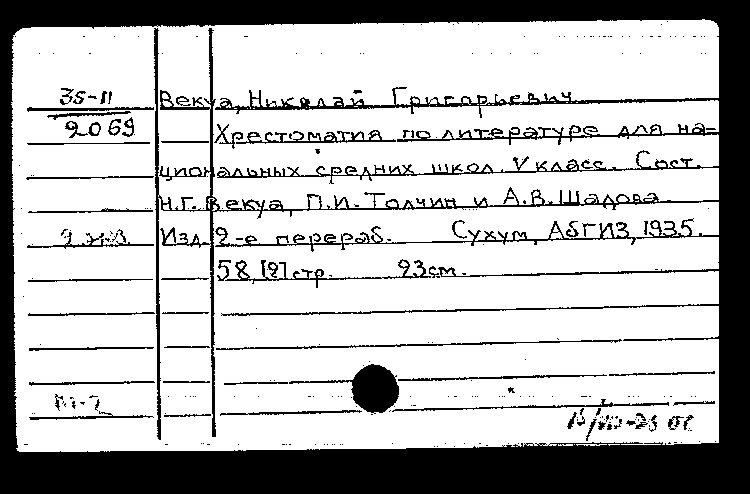 35-11
2069
Векуа, Николай Григорьевич
Хрестоматия по литературе для на=
циональных средних школ. V класс. Сост.
Н.Г. Векуа, П.И. Толчин и А.В. Шадова.
2 экз. Изд. 2-е перераб. Сухум, АБГИЗ, 1935.
58, [2] стр. 23 см.